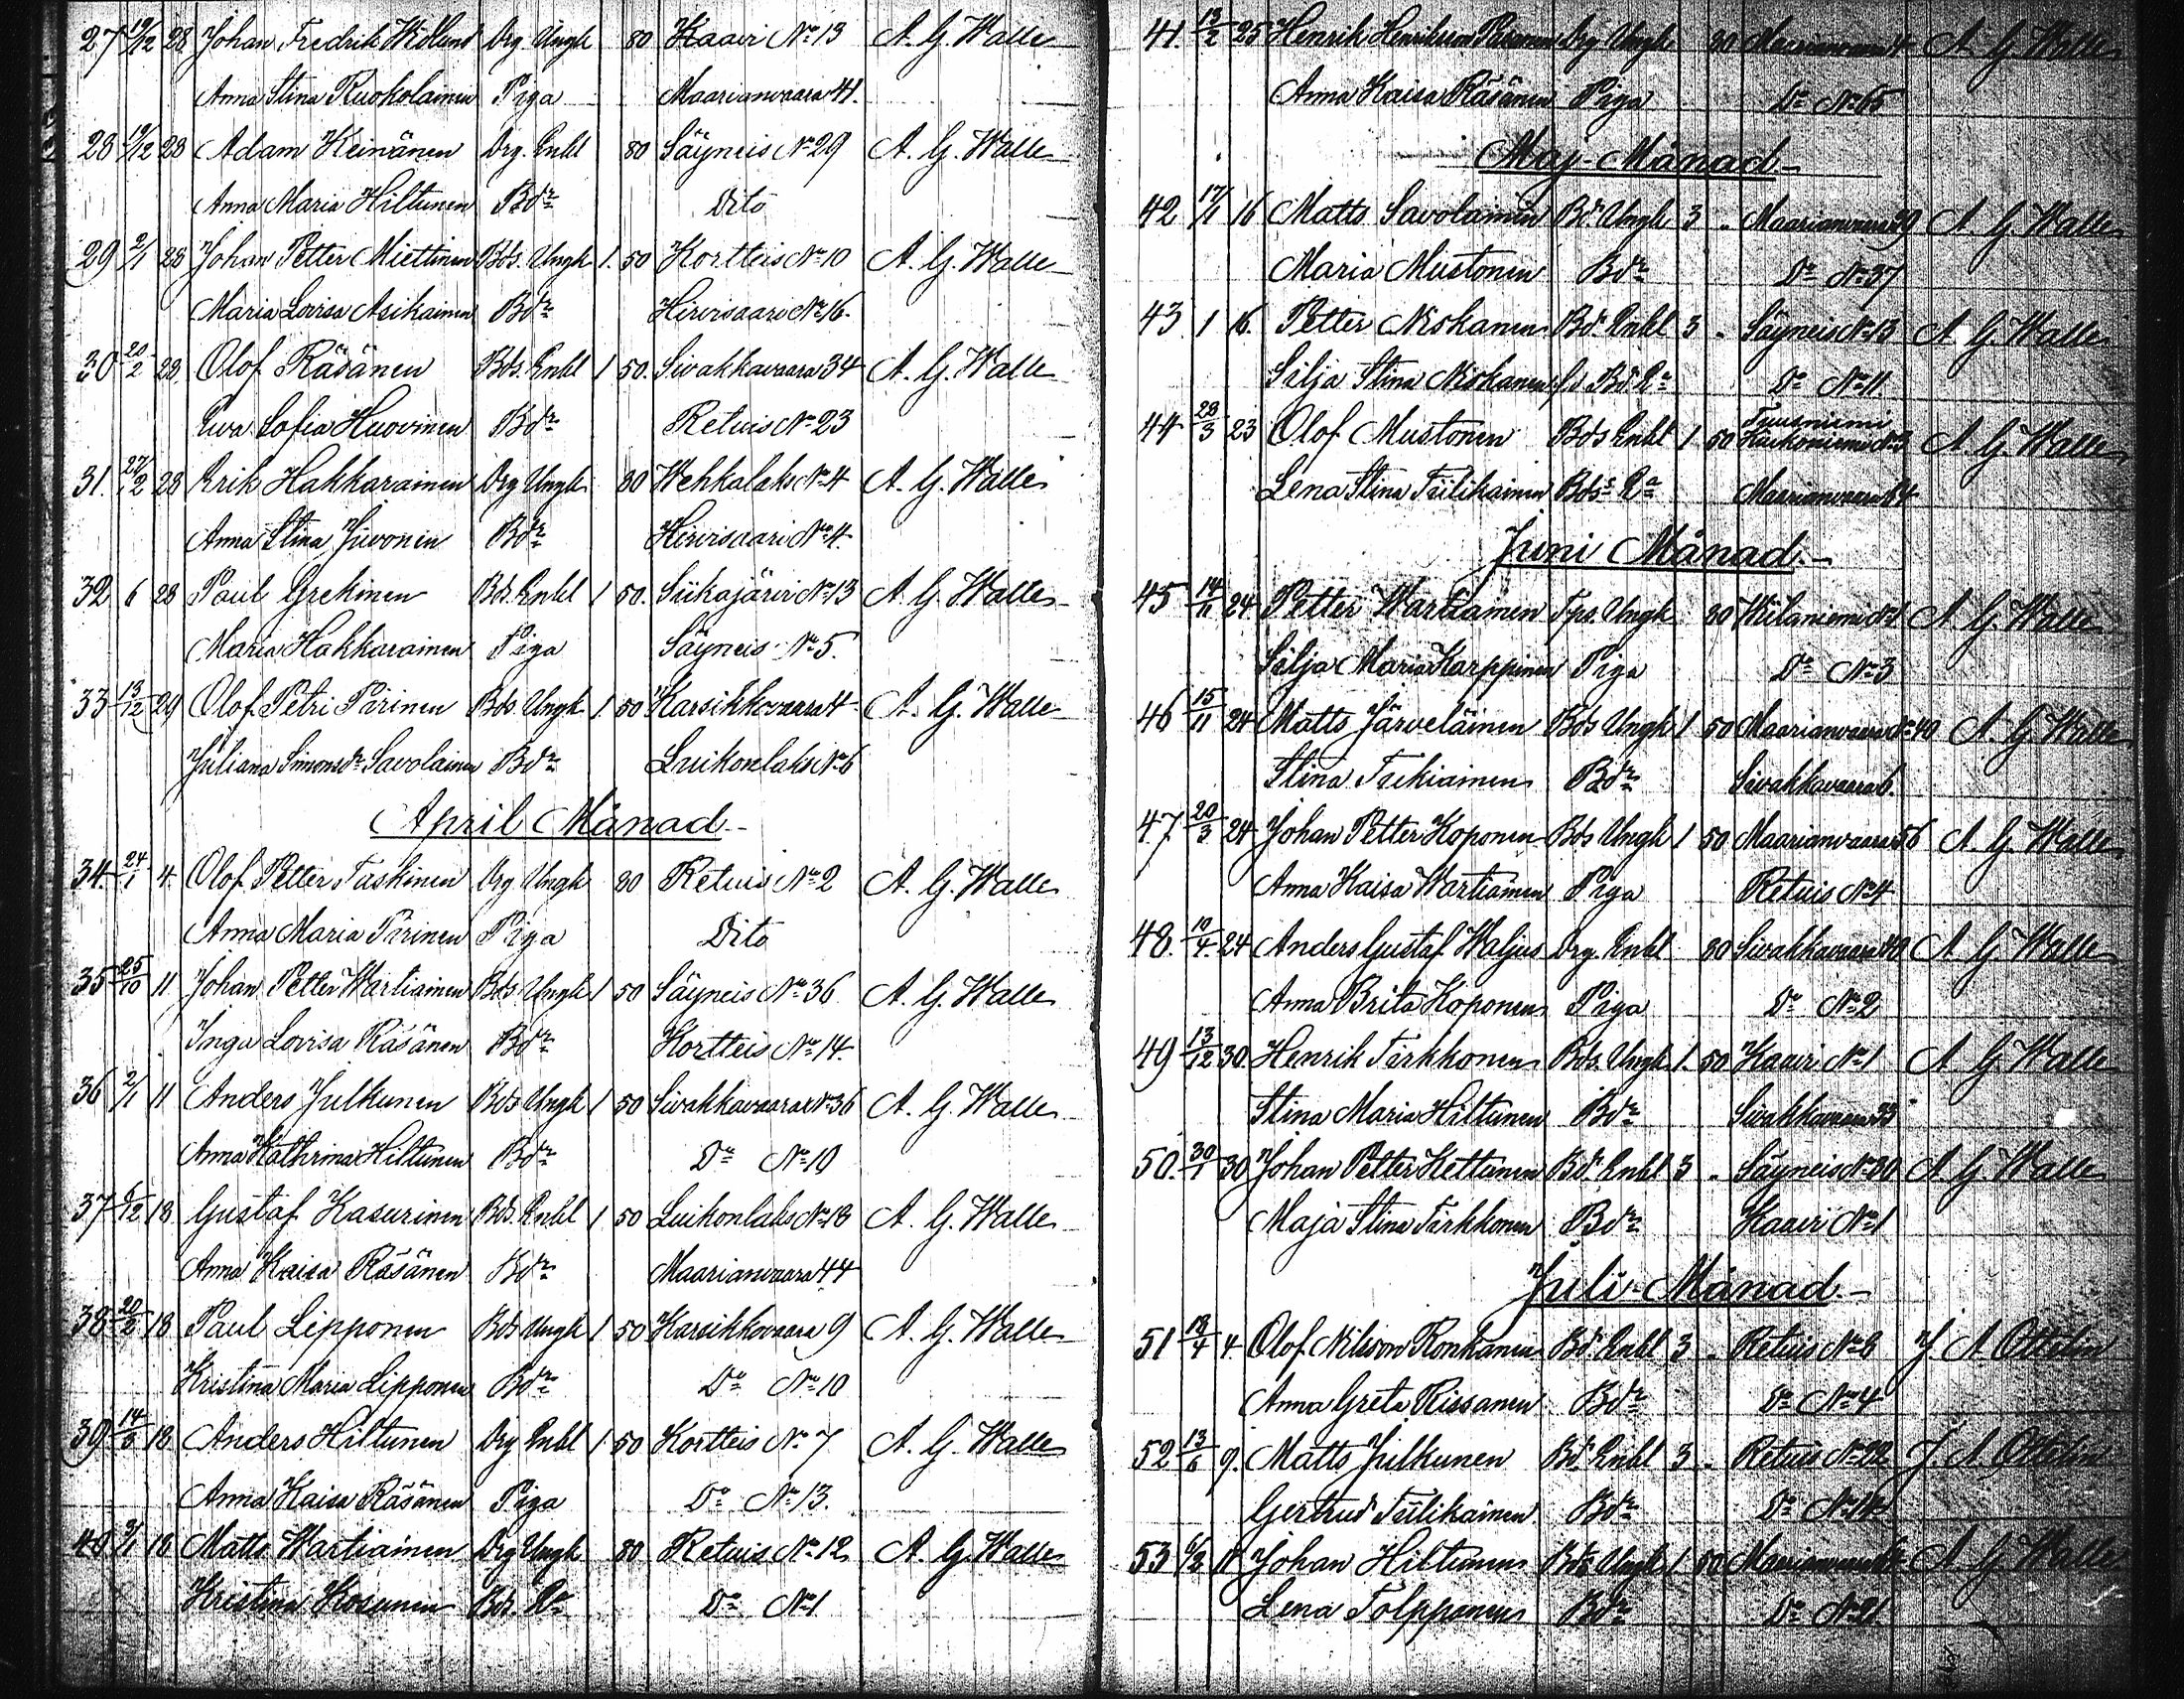 27 19/12 28 Johan Fredrik Widlund Drg Ungk 80 Kaavi No 13 A. G. Walle
Anna Stina Ruokolainen Piga Maarianvaara 41.
28 19/12 28 Adam Keinänen Drg. Enkl 80 Säyneis No 29 A. G. Walle
Anna Maria Hiltunen Bdr Dito
29 2/1 28 Johan Petter Miettinen Bds. Ungk 1. 50 Kortteis No 10 A. G. Walle
Maria Lovisa Asikainen Bdr Hirvisaari No 16.
30 20/2 28 Olof Räsänen Bds. Enkl 1 50. Sivakkavaara 34 A. G. Walle
Ewa Sofia Huovinen Bdr Retuis No 23
31. 27/12 28 Erik Hakkarainen Drg Ungk 80 Wehkalaks No 4 A. G. Walle
Anna Stina Juvonen Bdr Hirvisaari No 4.
32 6 28 Paul Grekinen Bds. Enkl 1 50. Siikajärvi No 13 A. G. Walle
Maria Hakkarainen Piga Säyneis No 5.
33 13/12 29 Olof Petri Pirinen Bds Ungk 1. 50 Karsikkovaara 4 A. G. Walle
Juliana Simonsdr Savolainen Bdr Luikonlaks No 6
April Månad.
34. 24/1 4. Olof Petter Taskinen Drg Ungk 80 Retuis No 2 A. G. Walle
Anna Maria Pirinen Piga Dito
35 25/10 11 Johan Petter Wartiainen Bds. Ungk 1 50 Säyneis No 36 A. G. Walle
Inga Lovisa Räsänen Bdr Kortteis No 14.
36 2/1 11 Anders Julkunen Bds Ungk 1 50 Sivakkavaara No 36 A. G. Walle
Anna Kathrina Hiltunen Bdr Do No 10
37 6/12 18 Gustaf Kasurinen Bds. Enkl 1 50 Luikonlaks No 18 A. G. Walle
Anna Kaisa Räsänen Bdr Maarianvaara 44
38 20/2 18 Paul Lipponen Bds Ungk 1. 50 Karsikkovaara 9 A. G. Walle
Kristina Maria Lipponen Bdr Do No 10
39 14/3 18 Anders Hiltunen Drg Enkl 1. 50 Kortteis No 7 A. G. Walle
Anna Kaisa Räsänen Piga Do No 13.
40 9/1 18 Matts Wartiainen Drg Ungk 80 Retuis No 12 A. G. Walle
Kristina Kosunen Bds. Ea Do No 1
41. 13/2 25 Henrik Henriksson Drg Ungk 80 A. G. Walle
Anna Kaisa Räsänen Piga Do No 65
Maj-Månad.
42 17/1 16 Matts Savolainen Bd. Ungk 3 „ Maarianvaara 39 A. G. Walle
Maria Mustonen Bdr Do No 37
43. 1 16. Petter Niskanen Bd. Enkl 3 „ Säyneis No 13 A. G. Walle
Silja Stina Niskanen fd Bd. Ea Do No 11.
44 23/3 23 Olof Mustonen Bds Enkl 1 50 Tuusniemi A. G. Walle
Lena Stina Tiilikainen Bds Ea Maarianvaara 64
Juni Månad.
45 14/11 24 Petter Wartiainen Tps. Ungk 80 Wiitaniemi No 1 A. G. Walle
Silja Maria Karppinen Piga Do No 3
46 15/11 24 Matts Järveläinen Bds Ungk 1 50 Maarianvaara No 40 A. G. Walle
Stina Tiikiainen Bdr Sivakkavaara 6.
47 20/3 24 Johan Petter Koponen Bds Ungk 1 50 Maarianvaara 56 A. G. Walle
Anna Kaisa Wartiainen Piga Retuis No 4
48. 10/4. 24 Anders Gustaf Waljus Drg. Enkl 80 Sivakkavaara A. G. Walle
Anna Brita Koponen Piga Do No 2
49 13/12 30 Henrik Tirkkonen Bds. Ungk 1. 50 Kaavi No 1 A. G. Walle
Stina Maria Hiltunen Bdr Sivakkavaara 35
50. 30/1 30 Johan Petter Kettunen Bd. Enkl 3 „ Säyneis No 30 A. G. Walle
Maja Stina Tirkkonen Bdr Kaavi No 1
Juli-Månad.
51 18/4 4. Olof Nilsson Ronkanen Bd. Enkl 3 „ Retuis No 8 J. A. Ottelin
Anna Greta Rissanen Bdr Do No 4
52 13/6 9. Matts Julkunen Bd. Enkl 3 „ Retuis No 22 J. A. Ottelin
Gertrud Tiilikainen Bdr Do No 14
53 6/3 11 Johan Hiltunen Bds Ungk 1 50 A. G. Walle
Lena Tolpponen Bdr Do No 21.